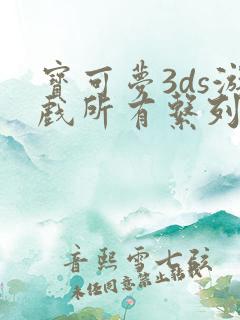 寶可夢3ds游
戲所有繫列
音熙雪七弦
未经同意禁止转载